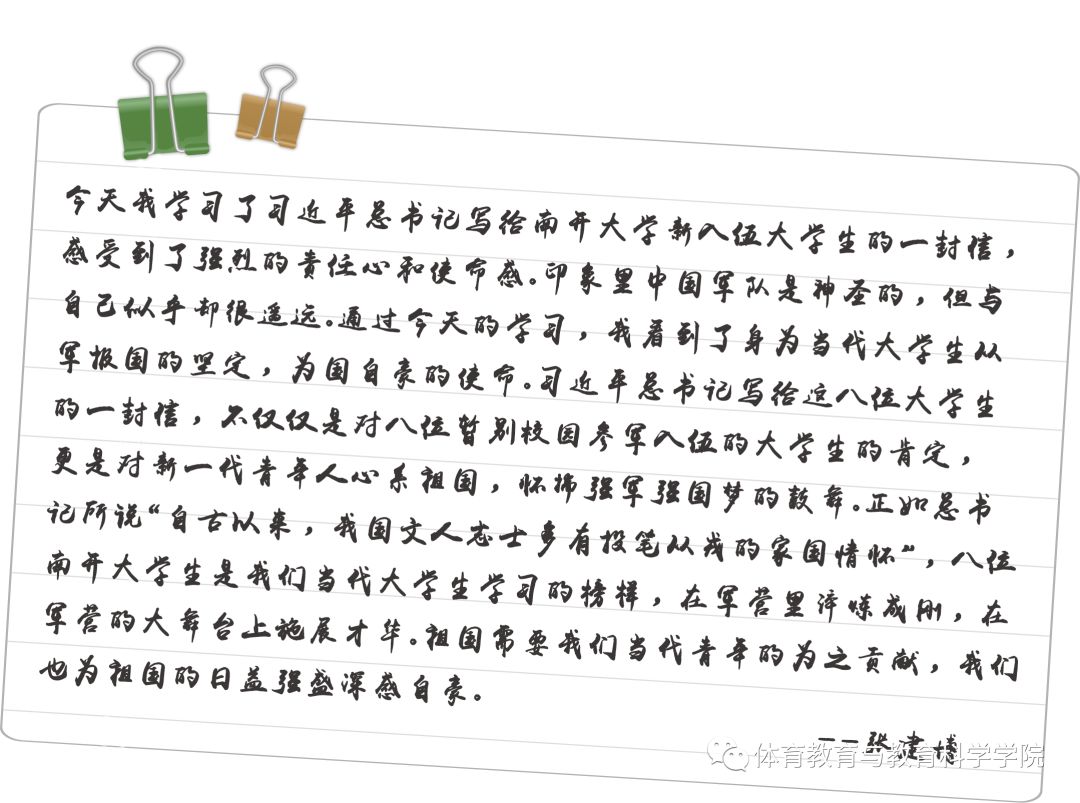 今天我学习了习近平总书记写给南开大学新入伍大学生的一封信，
感受到了强烈的责任心和使命感。印象里中国军队是神圣的，但与
自己似乎却很遥远。通过今天的学习，我看到了身为当代大学生从
军报国的坚定，为国自豪的使命。习近平总书记写给这八位大学生
的一封信，不仅仅是对八位暂别校园参军入伍的大学生的肯定，
更是对新一代青年人心系祖国，怀揣强军强国梦的鼓舞。正如总书
记所说“自古以来，我国文人志士多有投笔从戎的家国情怀”，八位
南开大学生是我们当代大学生学习的榜样，在军营里淬炼成刚，在
军营的大舞台上施展才华。祖国需要我们当代青年的为之贡献，我们
也为祖国的日益强盛深感自豪。
——张建博
体育教育与教育科学学院